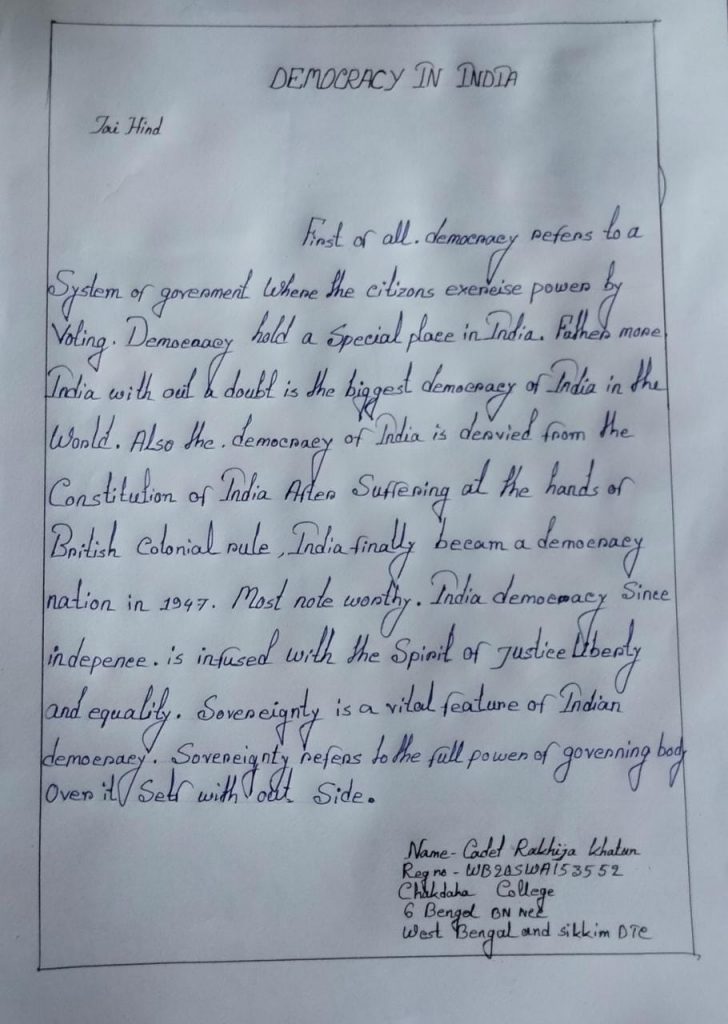 DEMOCRACY IN INDIA
Jai Hind
First of all. democracy refers to a
System of goverment where the citizons exercise power by
Voting. Democracy hold a special place in India. Father more
India with out a doubt is the biggest democracy of India in the
World. Also the. democracy of India is dervied from the
Constitution of India After Suffering at the hands of
British Colonial rule, India finally becam a democracy
nation in 1947. Most note worthy. India democracy Since
indepence. is infused with the Spirit of justice liberty
and equality. Sovereignty is a vital feature of Indian
democracy. Sovereignty refers to the full power of governing body
Over it Self with out Side.
Name- Cadet Rakhija Khatun
Reg no - WB20SWA153552
Chakdaha College
6 Bengal BN NCC
West Bengal and sikkim DTE